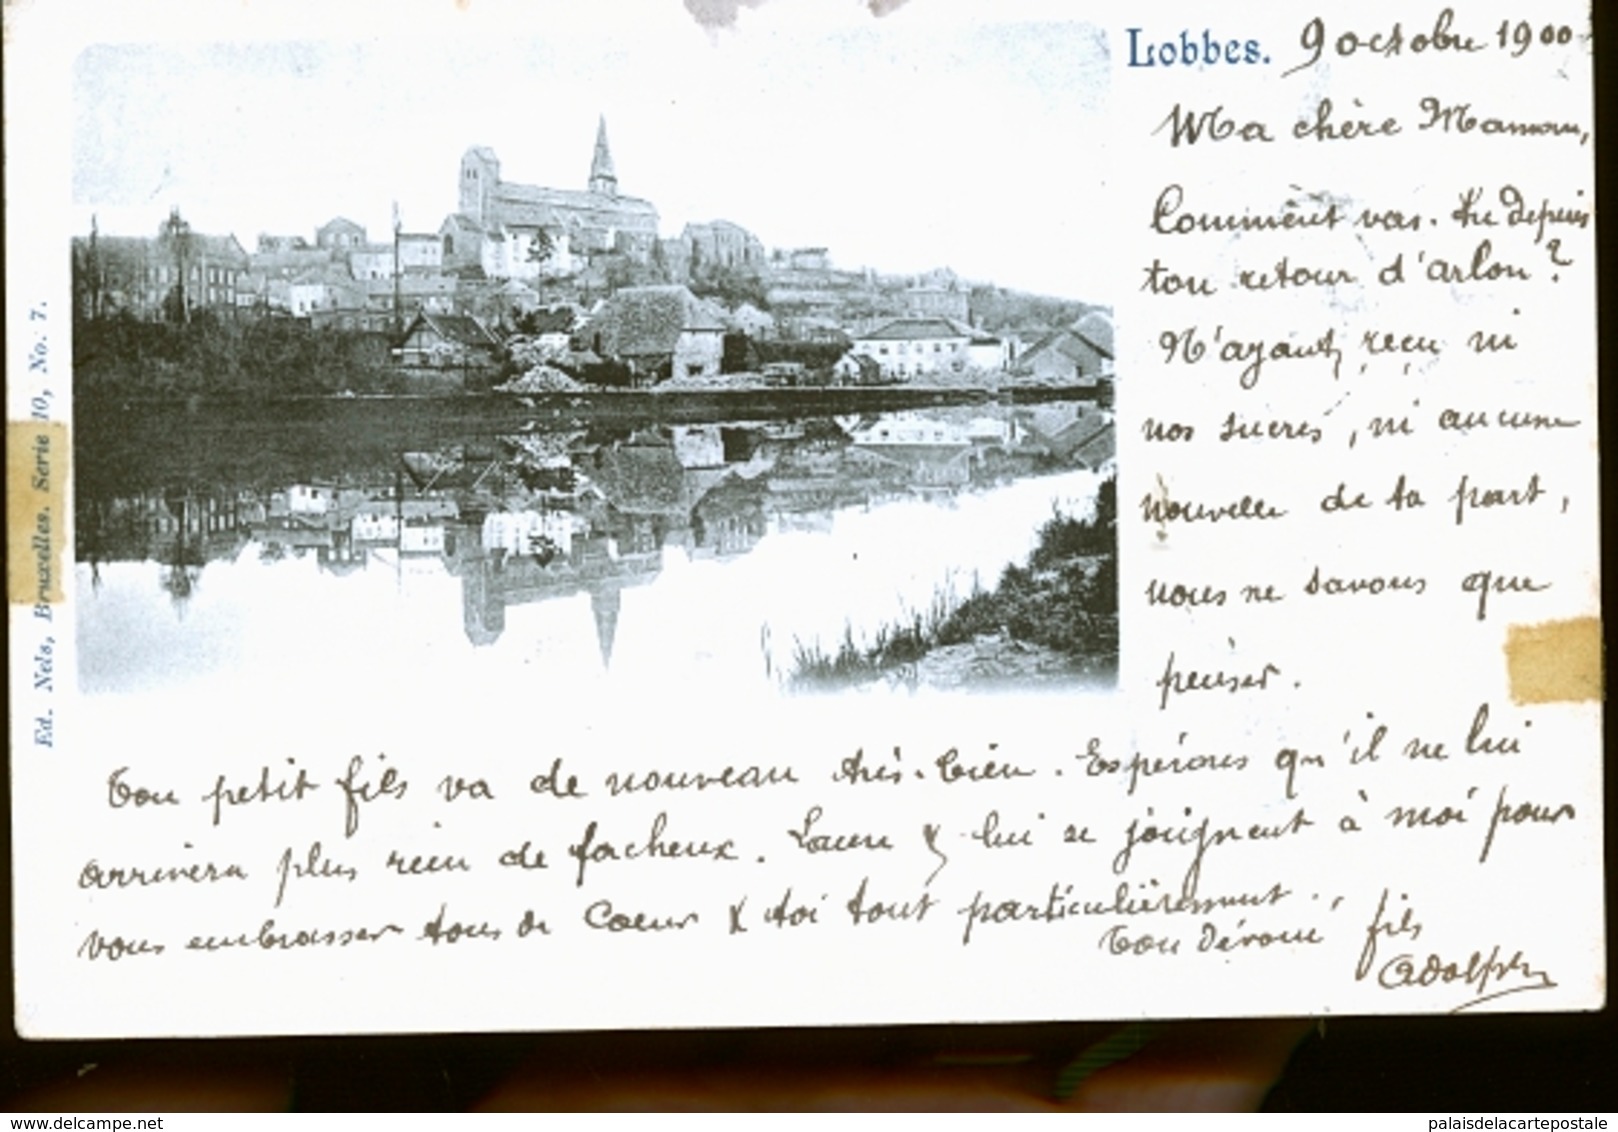 Lobbes. 9 octobre 1900
Ma chère Maman,
Comment vas-tu depuis
ton retour d'arlon ?
N'ayant reçu ni
nos sucres, ni aucune
nouvelle de ta part,
nous ne savons que
penser.
Ton petit fils va de nouveau très-bien. Espérons qu'il ne lui
arrivera plus rien de facheux. & lui se joignent à moi pour
vous embrasser tous de Coeur & toi tout particulièrement.
Ton dévoué fils
Adolphe
Ed. Nels, Bruxelles. Serie 10, No. 7.
delcampe.net
palaisdelacartepostale